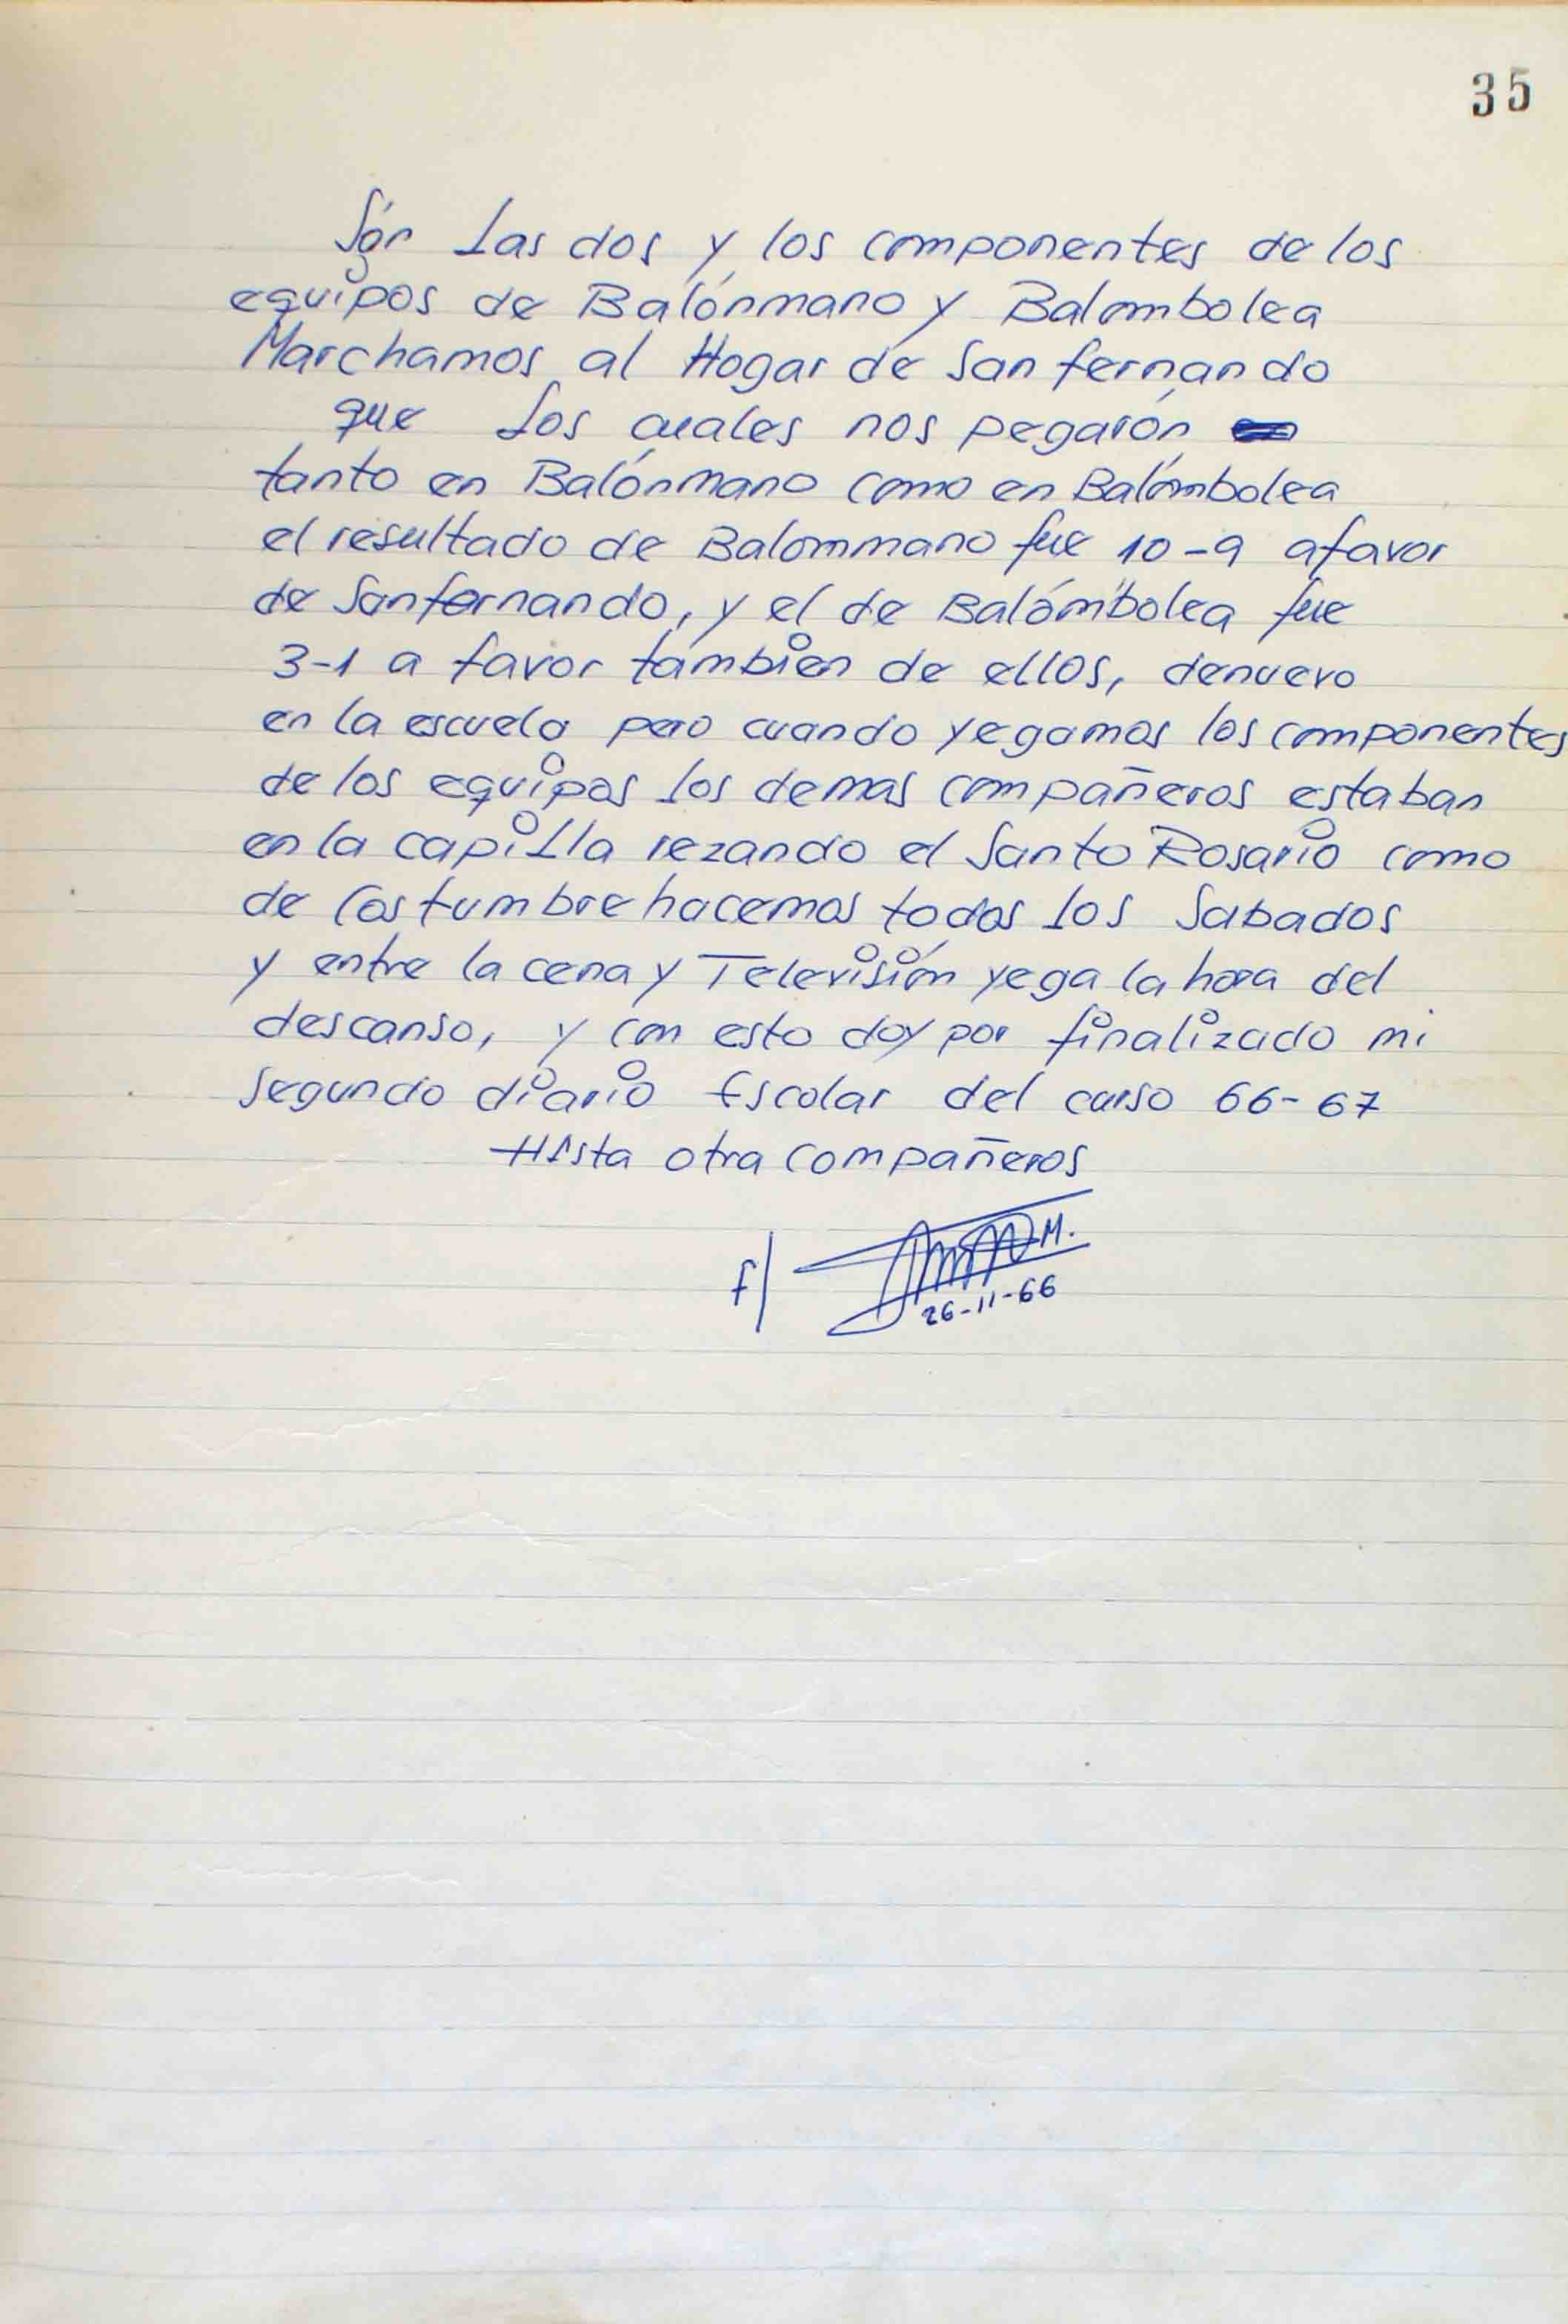 35
Són Las dos y los componentes de los
equipos de Balónmano y Balombolea
Marchamos al Hogar de San fernando
que Los cuales nos pegarón
tanto en Balónmano como en Balómbolea
el resultado de Balommano fue 10-9 afavor
de Sanfernando, y el de Balómbolea fue
3-1 a favor también de ellos, denuevo
en la escuela pero cuando yegamos los componentes
de los equipos los demas compañeros estaban
en la capilla rezando el Santo Rosario como
de Costumbre hacemos todos los Sabados
y entre la cena y Televisión yega la hora del
descanso, y con esto doy por finalizado mi
segundo diario Escolar del curso 66-67
HAsta otra compañeros
f/ M.
26-11-66